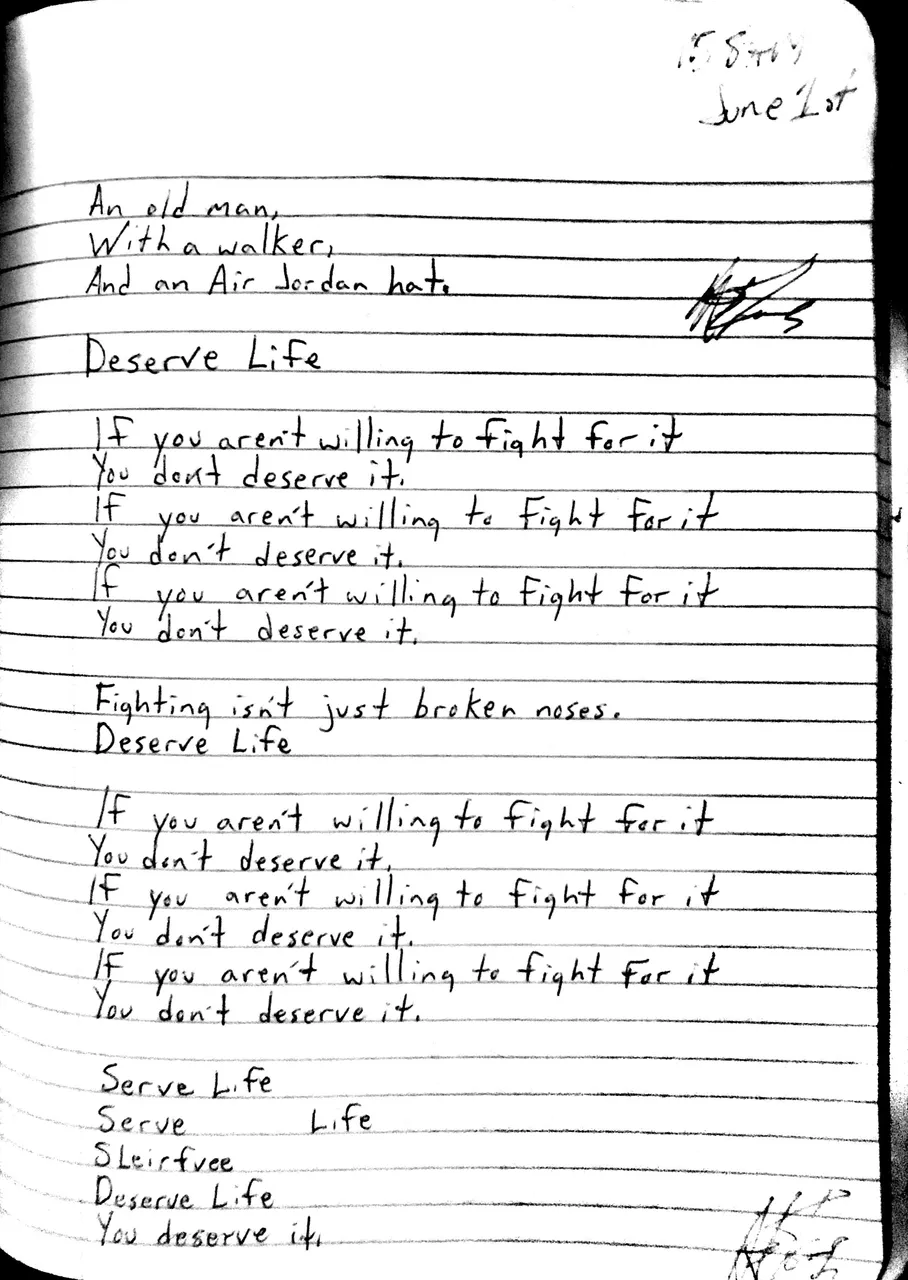 June 1st
An old man,
With a walker,
And an Air Jordan hat.
Deserve Life
If you aren't willing to fight for it
You don't deserve it.
If you aren't willing to fight for it
You don't deserve it.
If you aren't willing to fight for it
You don't deserve it.
Fighting isn't just broken noses.
Deserve Life
If you aren't willing to fight for it
You don't deserve it.
If you aren't willing to fight for it
You don't deserve it.
If you aren't willing to fight for it
You don't deserve it.
Serve Life
Serve Life
SLeirfvee
Deserve Life
You deserve it.